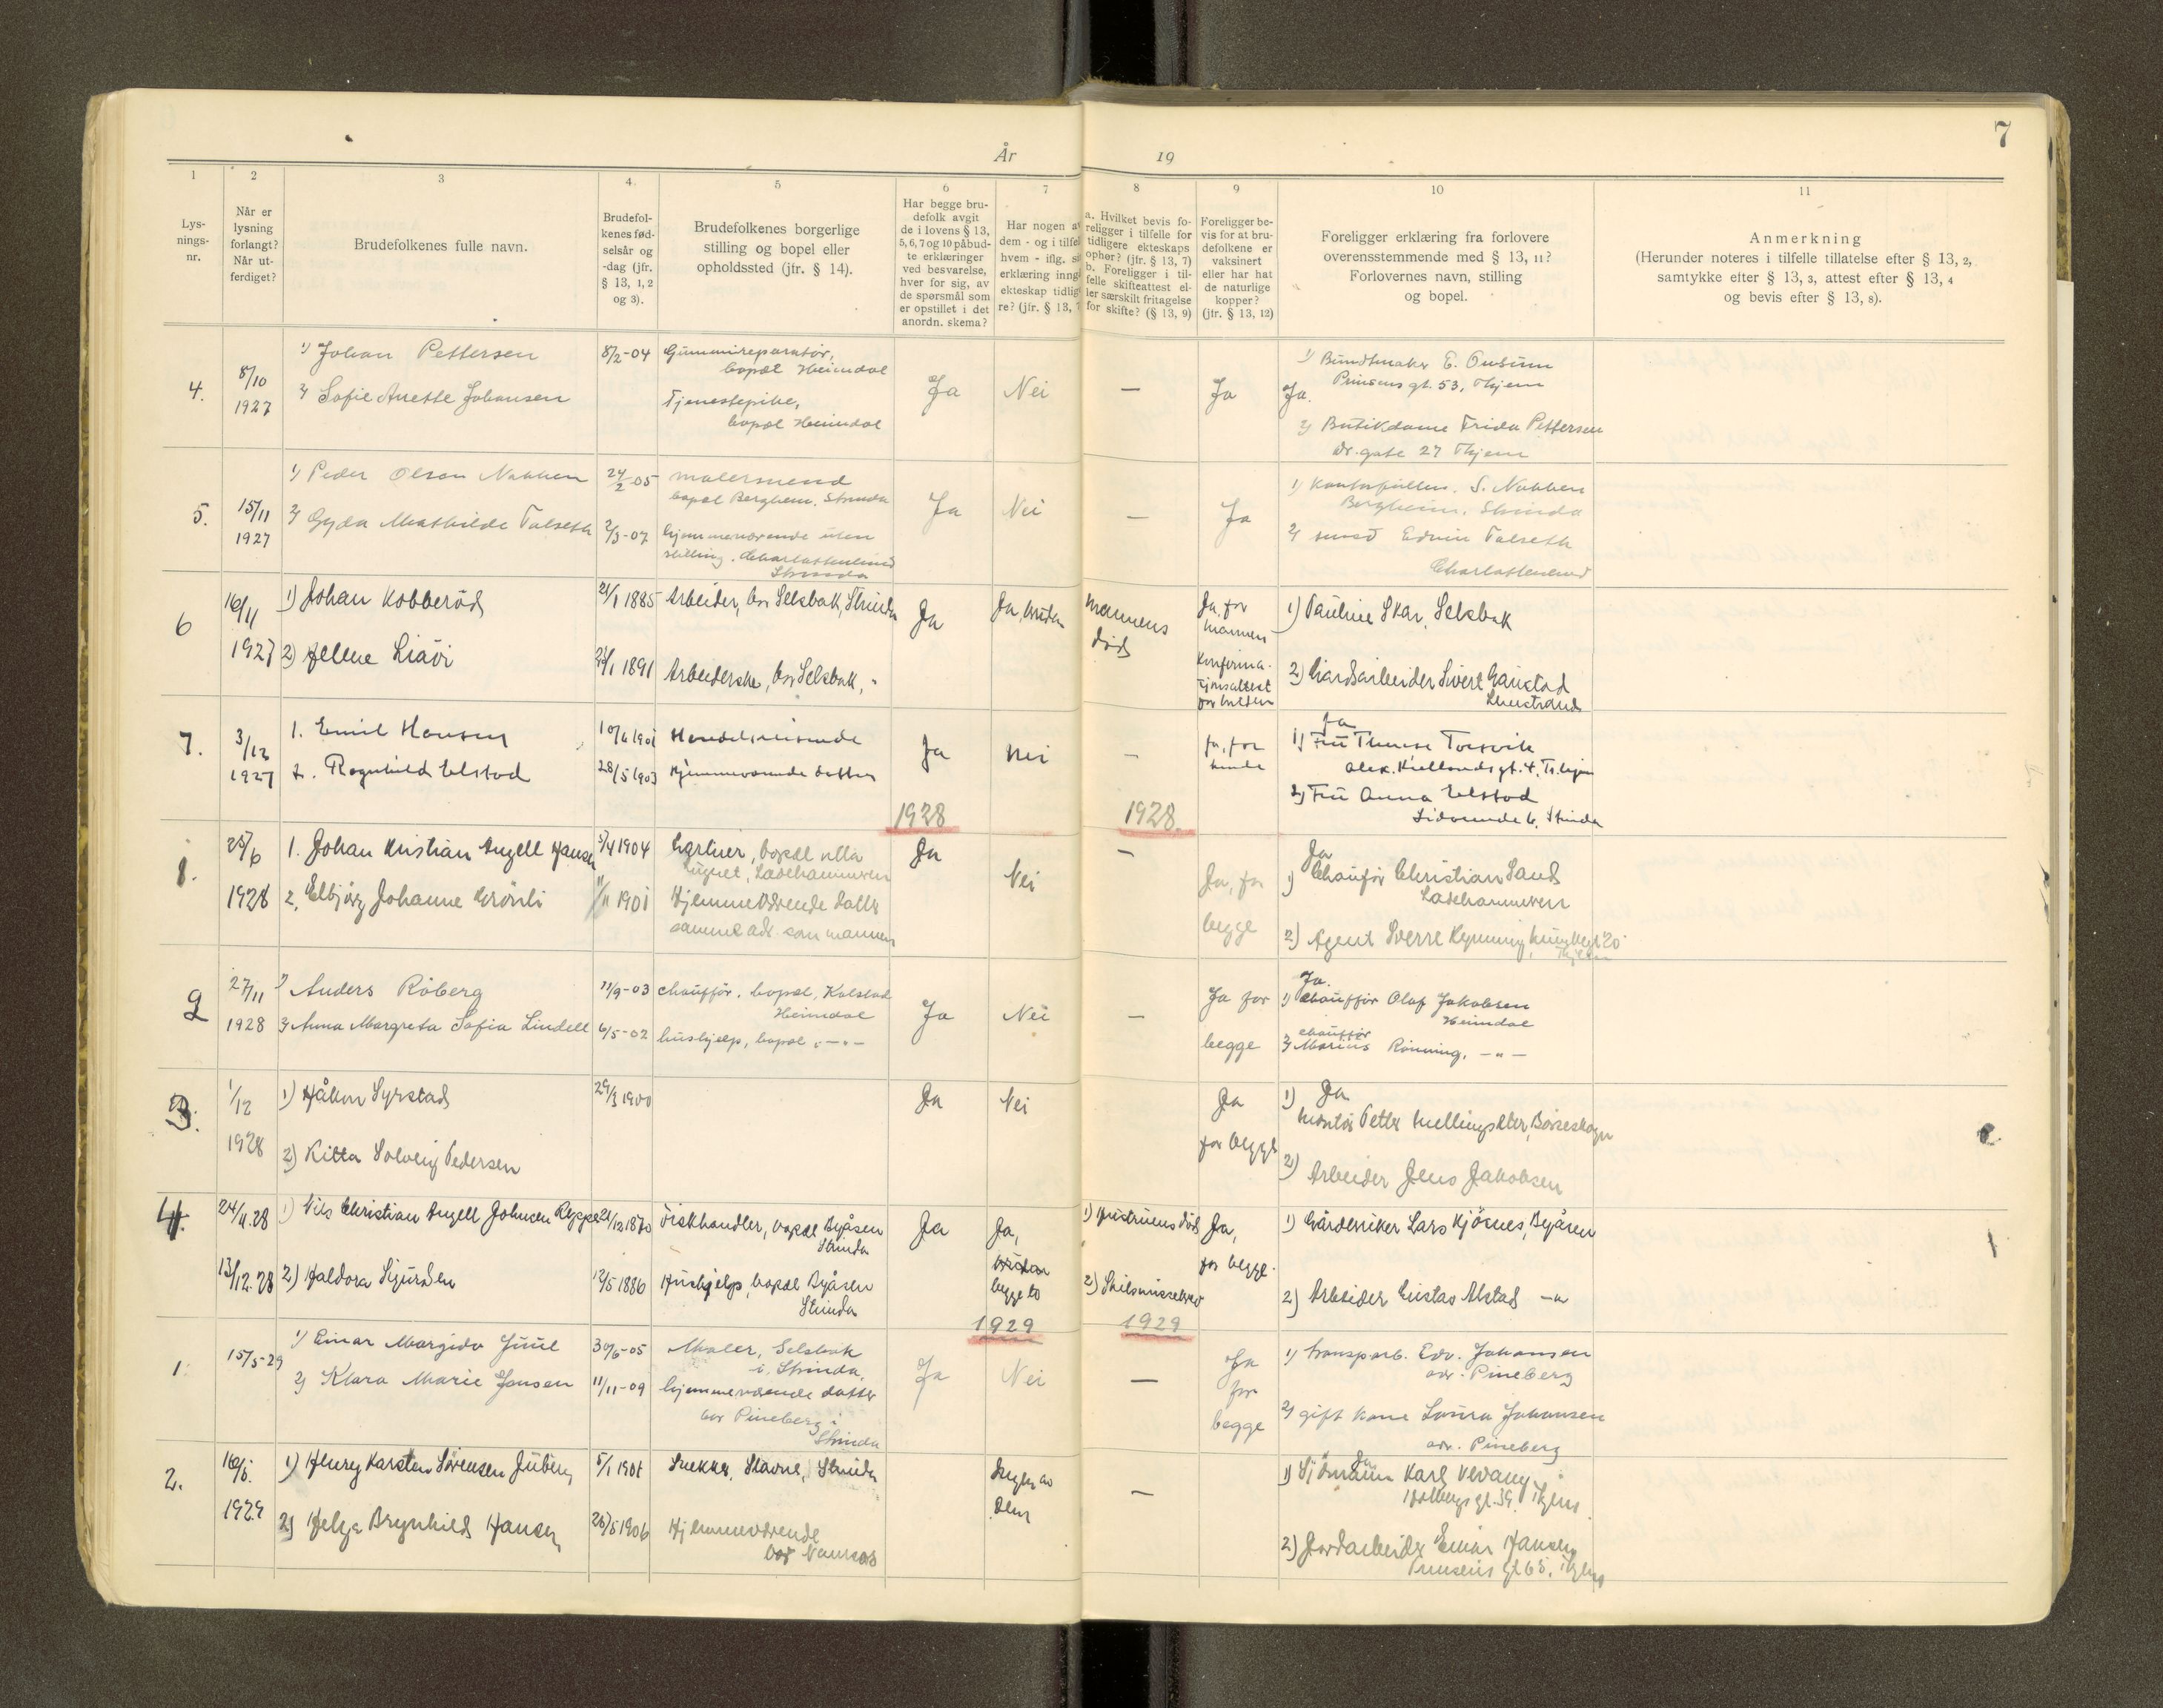 7
År 19
1
2
3
4
5
6
7
8
9
10
11
Lys-
nings-
nr.
Når er
lysning
forlangt?
Når ut-
ferdiget?
Brudefolkenes fulle navn.
Brudefol-
kenes fød-
selsår og
-dag (jfr.
§ 13, 1, 2
og 3).
Brudefolkenes borgerlige
stilling og bopel eller
opholdssted (jfr. § 14).
Har begge bru-
defolk avgit
de i lovens § 13,
5, 6, 7 og 10 påbud-
te erklæringer
ved besvarelse,
hver for sig, av
de spørsmål som
er opstillet i det
anordn. skema?
Har nogen av
dem - og i tilfel
hvem - iflg. s
erklæring inng
ekteskap tidlig
re? (jfr. § 13, 7
a. Hvilket bevis fo-
religger i tilfelle for
tidligere ekteskaps
ophør? (jfr. § 13, 7)
b. Foreligger i til-
felle skifteattest el-
ler særskilt fritagelse
for skifte? (§ 13, 9)
Foreligger be-
vis for at bru-
defolkene er
vaksinert
eller har hat
de naturlige
kopper?
(jfr. § 13, 12)
Foreligger erklæring fra forlovere
overensstemmende med § 13, 11?
Forlovernes navn, stilling
og bopel.
Anmerkning
(Herunder noteres i tilfelle tillatelse efter § 13, 2,
samtykke efter § 13, 3, attest efter § 13, 4
og bevis efter § 13, 8).
4.
8/10
1927
1) Johan Pettersen
2) Sofie Anette Johansen
8/2-04
Gummireparatør,
bopæl Heimdal
Tjenestepike,
bopæl Heimdal
Ja
Nei
—
Ja
Ja.
1) Bundtmaker E. Ousum
Prinsens gt. 53, Thjem
2) Butikdame Frida Pettersen
gate 27 Thjem
5.
15/11
1927
1) Peder Olson Nakken
2) Gyda Mathilde Talseth
24/2-05
2/3-07
malersvend
bopæl Bergheim, Strinda
hjemmeværende uten
stilling. Charlottenlund
Strinda
Ja
Nei
—
Ja
1) S. Nakken
Bergheim, Strinda
2) Edvin Talseth
Charlottenlund
6
16/11
1927
1) Johan Kobberød
2) Helene Liavi
21/1 1885
1891
Arbeider, bor Selsbak, Strinda
Arbeiderske, bor Selsbak, "
Ja
Ja, bruden
mannens
død
Ja, for
mannen
konfirma-
tionsattest
for bruden
1) Pauline Skar, Selsbak
2) Gardsarbeider Sivert Gaustad
7.
3/12
1927
1. Emil Hansen
2. Ragnhild Elstad
10/6 1901
28/5 1903
Handelsreisende
Hjemmeværende datter
Ja
Nei
—
Ja, for
Ja
1) Fru Therese Torsvik
Alex. Kiellandsgt. 4, Tr.hjem
2) Fru Anna Elstad
Strinda
1928
1928
1.
25/6
1928
1. Johan Kristian Angell Hansen
2. Elbjørg Johanne Grönli
5/4 1904
11/11 1901
Gartner, bopæl villa
Ladehammeren
Hjemmeværende datter
samme adr. som mannen
Ja
Nei
—
Ja, for
begge
Ja
1) Chauffør Christian Sand
Ladehammeren
2) Agent Sverre
2
27/11
1928
1) Anders Röberg
2) Anna Margreta Sofia Lindell
11/9-03
6/5-02
chauffør, bopæl, Kolstad
Heimdal
hushjelp, bopæl — " —
Ja
Nei
—
Ja for
begge
Ja.
1) Chauffør Olaf Jakobsen
Heimdal
chauffør
2) Marius Rönning, — " —
3.
1/12
1928
1) Håkon Syrstad
2) Kitta Solveig Pedersen
29/3 1900
Ja
Nei
Ja
for begge
1) Ja
Montør Petter Mellingsæter, Börseskogn
2)
Arbeider Jens Jakobsen
4.
24/11.28
13/12.28
1) Nils Christian Angell Johnsen Reppe
2) Haldora Sigurdsen
21/12 1870
12/5 1886
Fiskhandler, bopæl Byåsen
Strinda
Hushjelp, bopæl Byåsen
Strinda
Ja
Ja,
begge to
1) Hustruens død
2) Skilsmissebrev
Ja,
for begge.
1) Gårdbruker Lars Kjösnes, Byåsen
2) Arbeider Gustav Alstad — "
1929
1929
1.
15/5-29
1) Einar Margido Juul
2) Klara Marie Jensen
30/6-05
11/11-09
Maler, Selsbak
i Strinda,
hjemmeværende datter
bor Pineberg i
Strinda
Ja
Nei
—
Ja
for
begge
1) transparb. Edv. Johansen
adr. Pineberg
2) gift kone Laura Johansen
adr. Pineberg
2.
16/5.
1929
1) Henry Karsten Sörensen Juberg
2) Helga Brynhild Hansen
5/1 1901
26/5 1906
Snekker, Stavne, Strinda
Hjemmeværende
bor Namsos
Ingen av
dem
—
Ja
1) Sjömann Karl Vevang
Holbergs gt. 39, Thjem
2) Jordarbeider Einar Hansen
Prinsens gt 65, Thjem